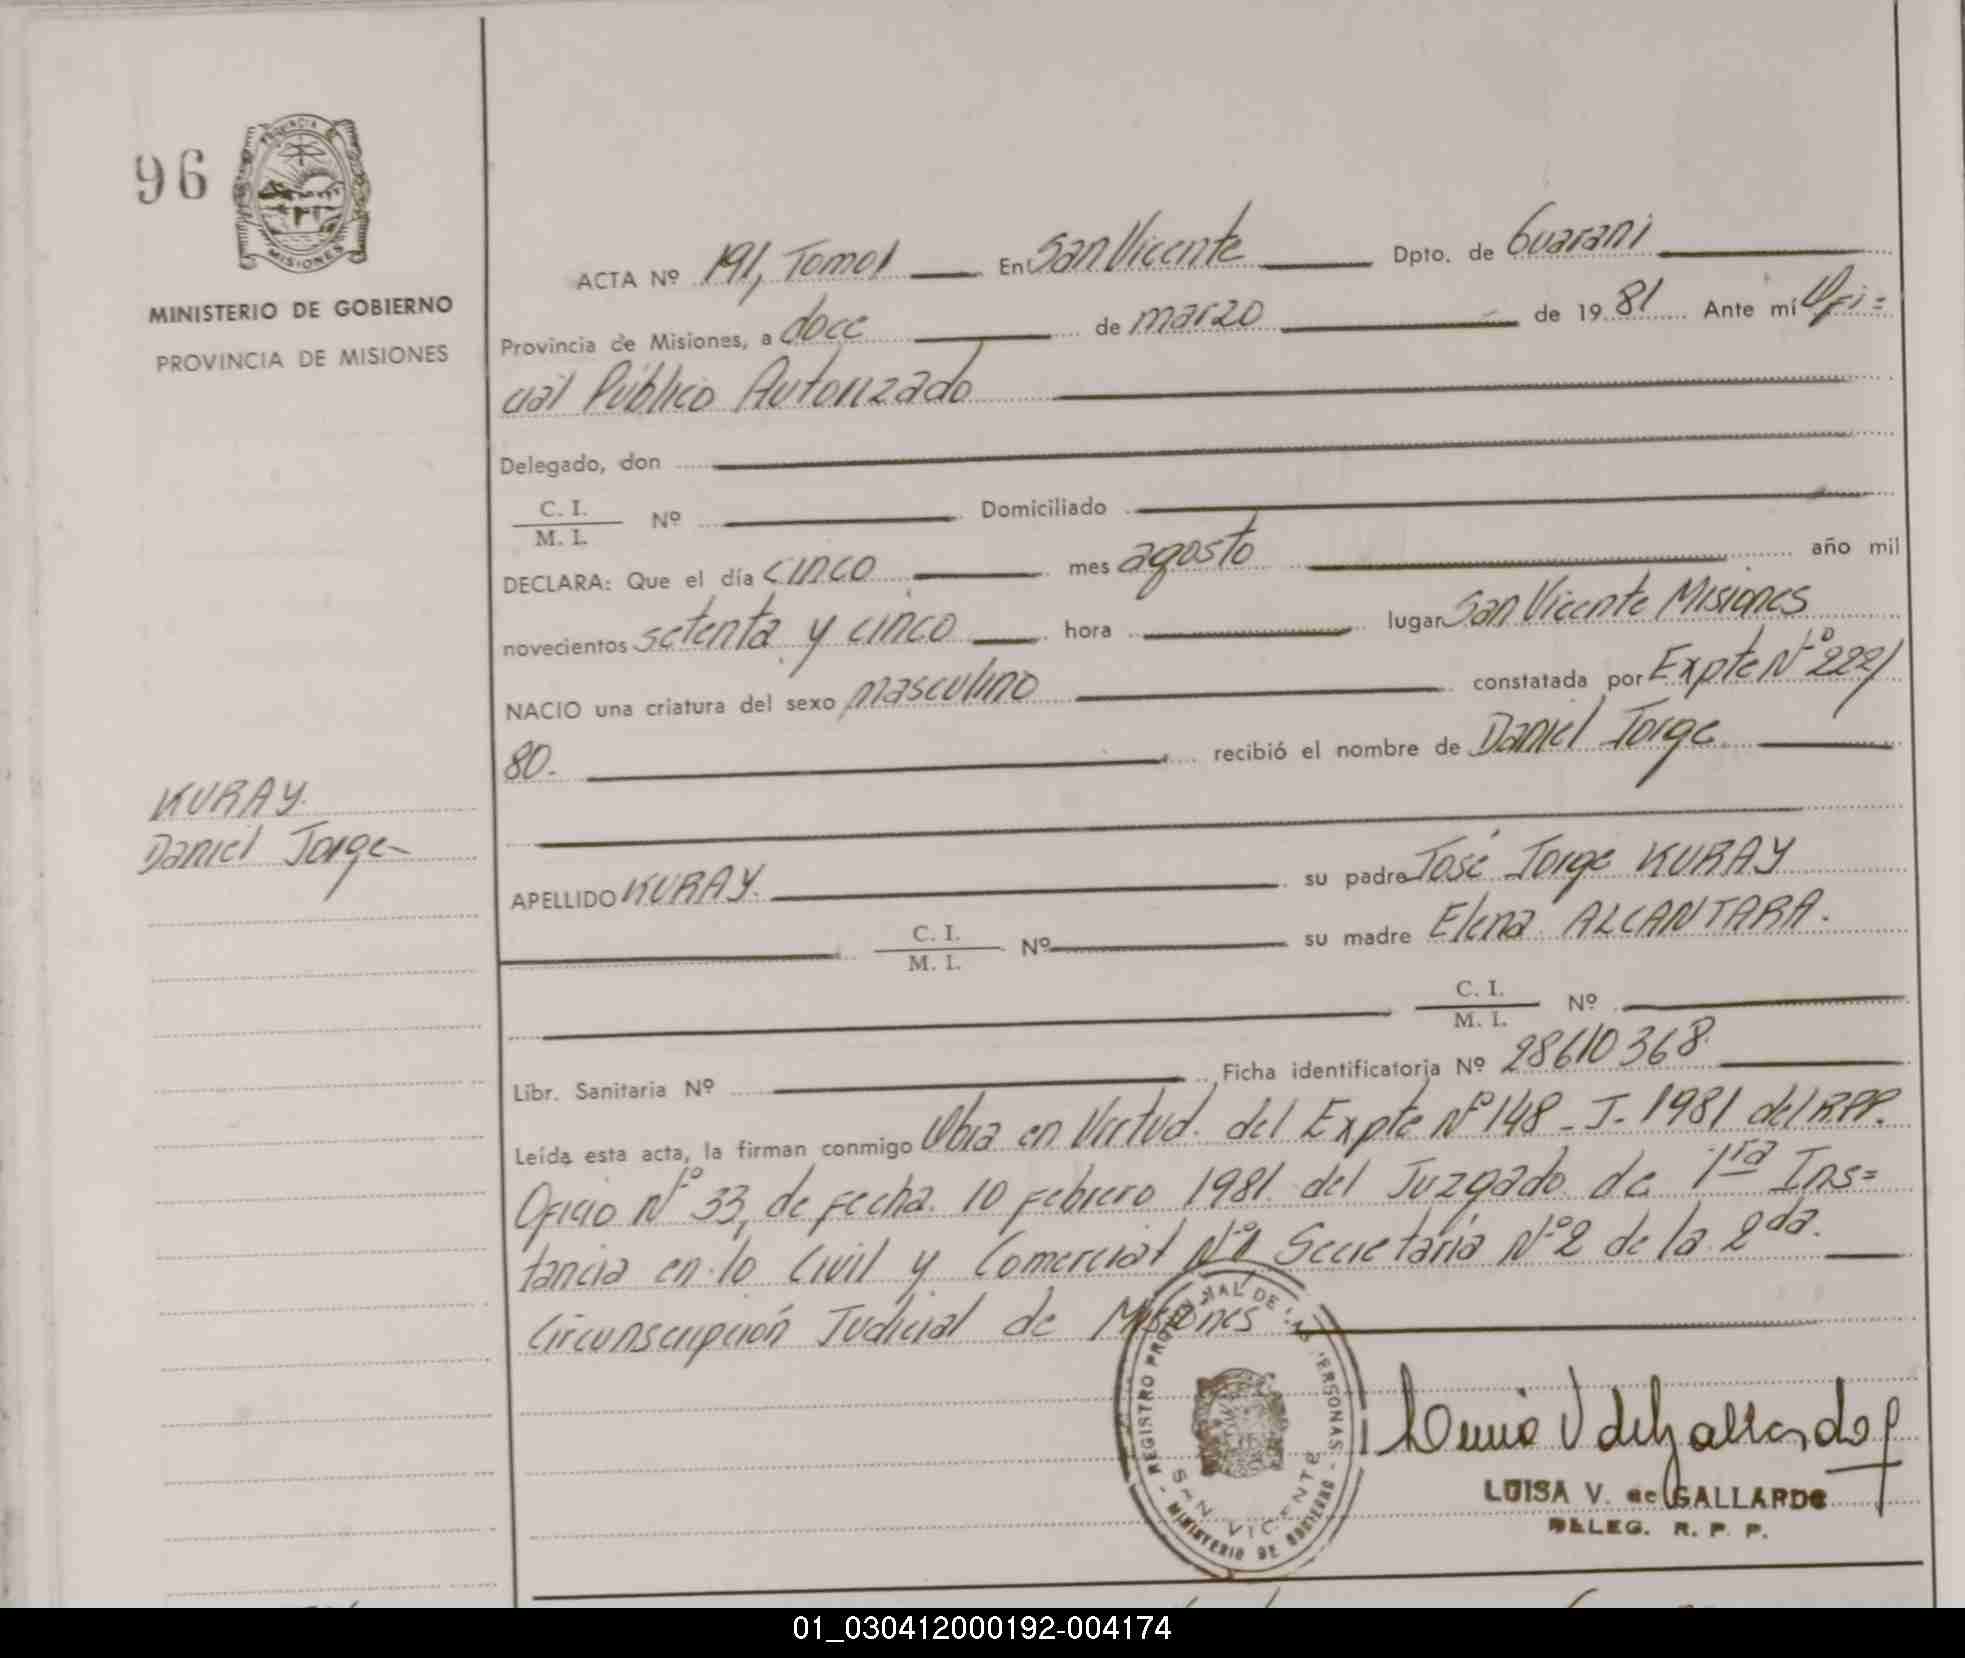 96
PROVINCIA DE
MISIONES
MINISTERIO DE GOBIERNO
PROVINCIA DE MISIONES
ACTA Nº 191, Tomo I En San Vicente Dpto. de Guaraní
Provincia de Misiones, a doce de marzo de 19 81 Ante mí Ofi=
cial Público Autorizado
Delegado, don
C. I.
M. I. Nº Domiciliado
DECLARA: Que el día cinco mes agosto año mil
novecientos setenta y cinco hora lugar San Vicente Misiones
NACIO una criatura del sexo masculino constatada por Expte Nº 222/
80. recibió el nombre de Daniel Jorge
KURAY
Daniel Jorge
APELLIDO KURAY. su padre José Jorge KURAY
C. I.
M. I. Nº su madre Elena ALCANTARA.
C. I.
M. I. Nº
Libr. Sanitaria Nº Ficha identificatoria Nº 28610368
Leída esta acta, la firman conmigo Obra en Virtud del Expte Nº 148-J-1981 del R.P.P.
Oficio Nº 33, de fecha 10 febrero 1981 del Juzgado de 1ra Ins=
tancia en lo Civil y Comercial Nº 1 Secretaria Nº 2 de la 2da.
Circunscripción Judicial de Misiones
REGISTRO PROVINCIAL DE LAS PERSONAS
SAN VICENTE
MINISTERIO DE GOBIERNO
Luisa V de Gallardo
LUISA V. de GALLARDO
DELEG. R. P. P.
01_030412000192-004174